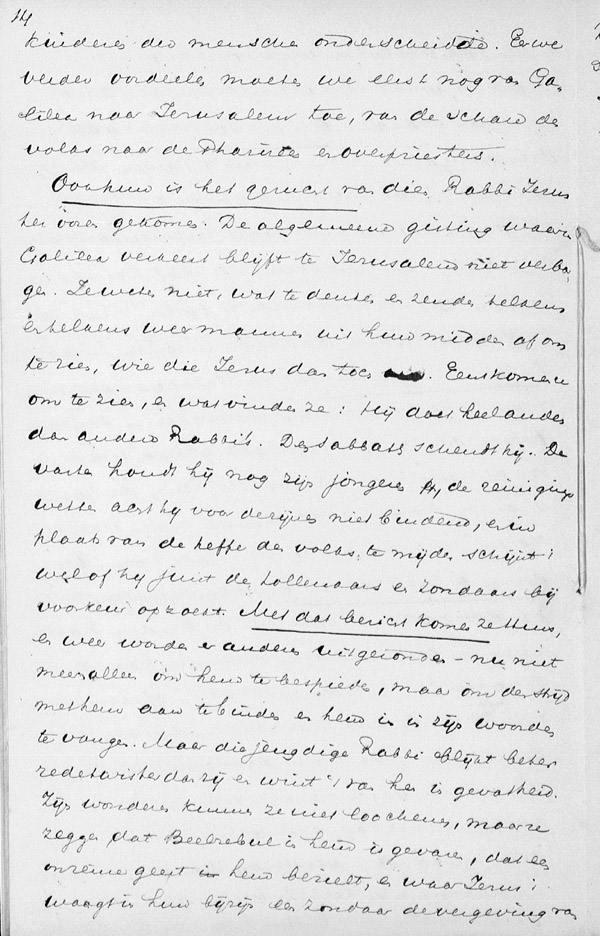 14
kinderen der menschen onderscheidde. Er we
verder oordeelen, moeten we eerst nog van Ga-
lilea naar Jerusalem toe, van de scharen des
volks naar de Pharizeën en overpriesters.
Ook hun is het gerucht van dien Rabbi Jezus
ter ooren gekomen. De algemeene gisting waarin
Galilea verkeert blijft te Jerusalem niet verbor-
gen. Ze weten niet, wat te denken en zenden telkens
en telkens weer mannen uit hun midden af om
te zien, wie die Jezus dan toch. Eens komen
om te zien, en wat vinden ze: Hij doet heel anders
dan andere Rabbi's. Den Sabbath schendt hij. De
vasten houdt hij nog zijn jongeren, de reinigings
wetten acht hij voor de zijnen niet bindend, en in
plaats van de heffe des volks te mijden schijnt 't
wel of hij juist de tollenaars en zondaars bij
voorkeur opzoekt. Met dat bericht komen ze thuis,
en weer worden er anderen uitgezonden - nu niet
meer alleen om hem te bespieden, maar om den strijd
met hem aan te binden en hem in zijn woorden
te vangen. Maar die jeugdige Rabbi blijkt beter
redetwister dan zij en wint 't van hen in gevatheid.
Zijn wonderen kunnen ze niet loochenen, maar ze
zeggen dat Beëlzebul in hem is gevaren, dat een
onreine geest hem bezielt, en waar Jezus 't
waagt in hun bijzijn een zondaar de vergeving van